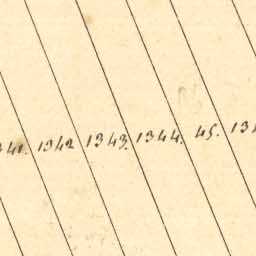 41. 1342 1343. 1344. 45. 13